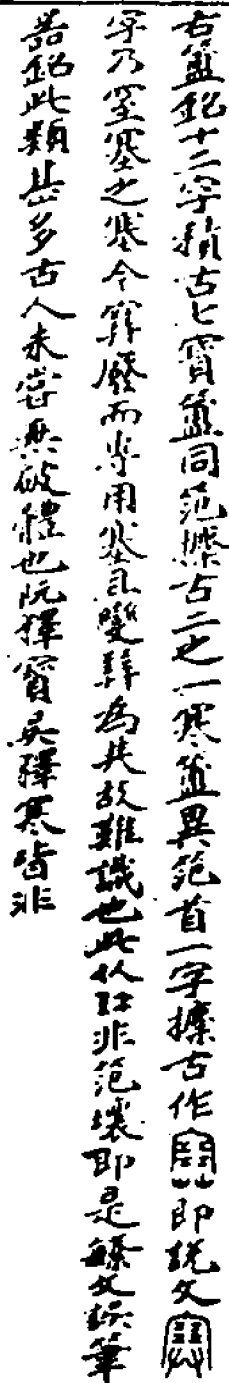 右簠銘十二字積古七寶簠同范攈古二之一寒簠異范首一字攈古作即說文
字乃窒塞之塞今䆯廢而專用塞且變𠔁為共故難識也此从非范壞即是緐文誤筆
器銘此類甚多古人未嘗無破體也阮釋寶吳釋寒皆非